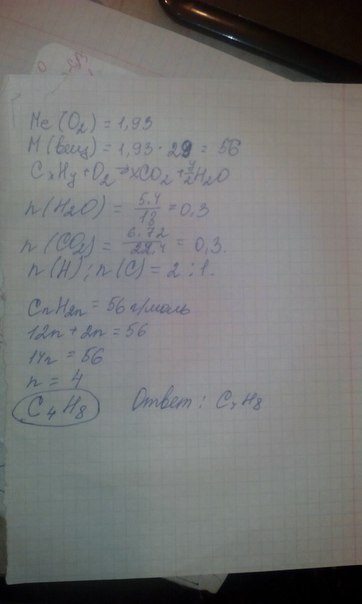 Mс(O₂) = 1,93
M(вещ) = 1,93 · 29 = 56
CxHy + O₂ → xCO₂ + y/2 H₂O
n(H₂O) = 5.4/18 = 0.3
n(CO₂) = 6.72/22.4 = 0.3.
n(H) : n(C) = 2 : 1.
CnH2n = 56 г/моль
12n + 2n = 56
14n = 56
n = 4
C₄H₈ Ответ : C₄H₈